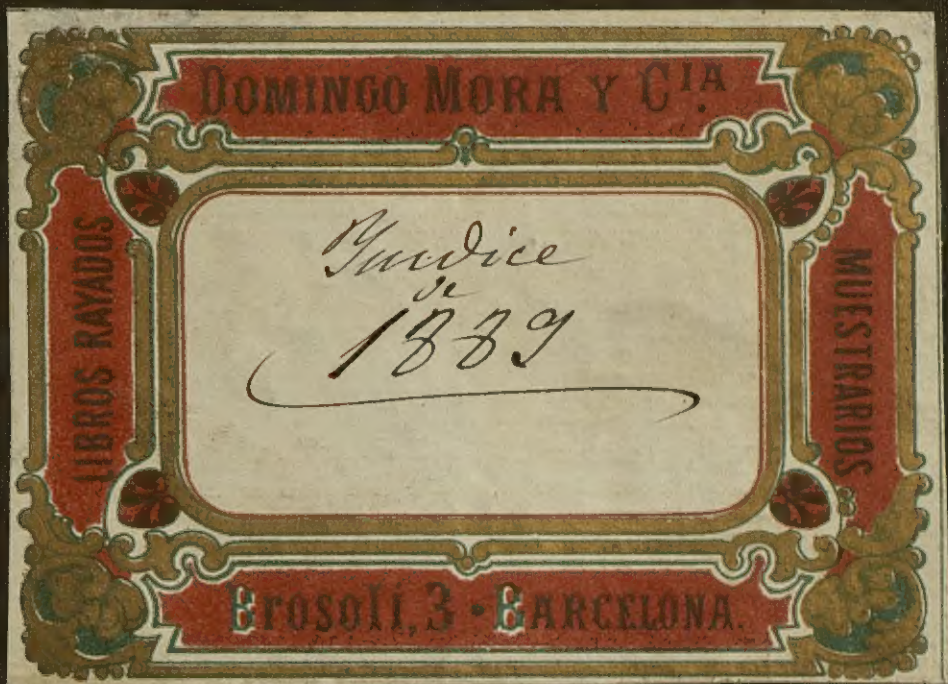 DOMINGO MORA Y CIA.
LIBROS RAYADOS
Yundice
de
1889
MUESTRARIOS
Brosolí, 3 · BARCELONA.